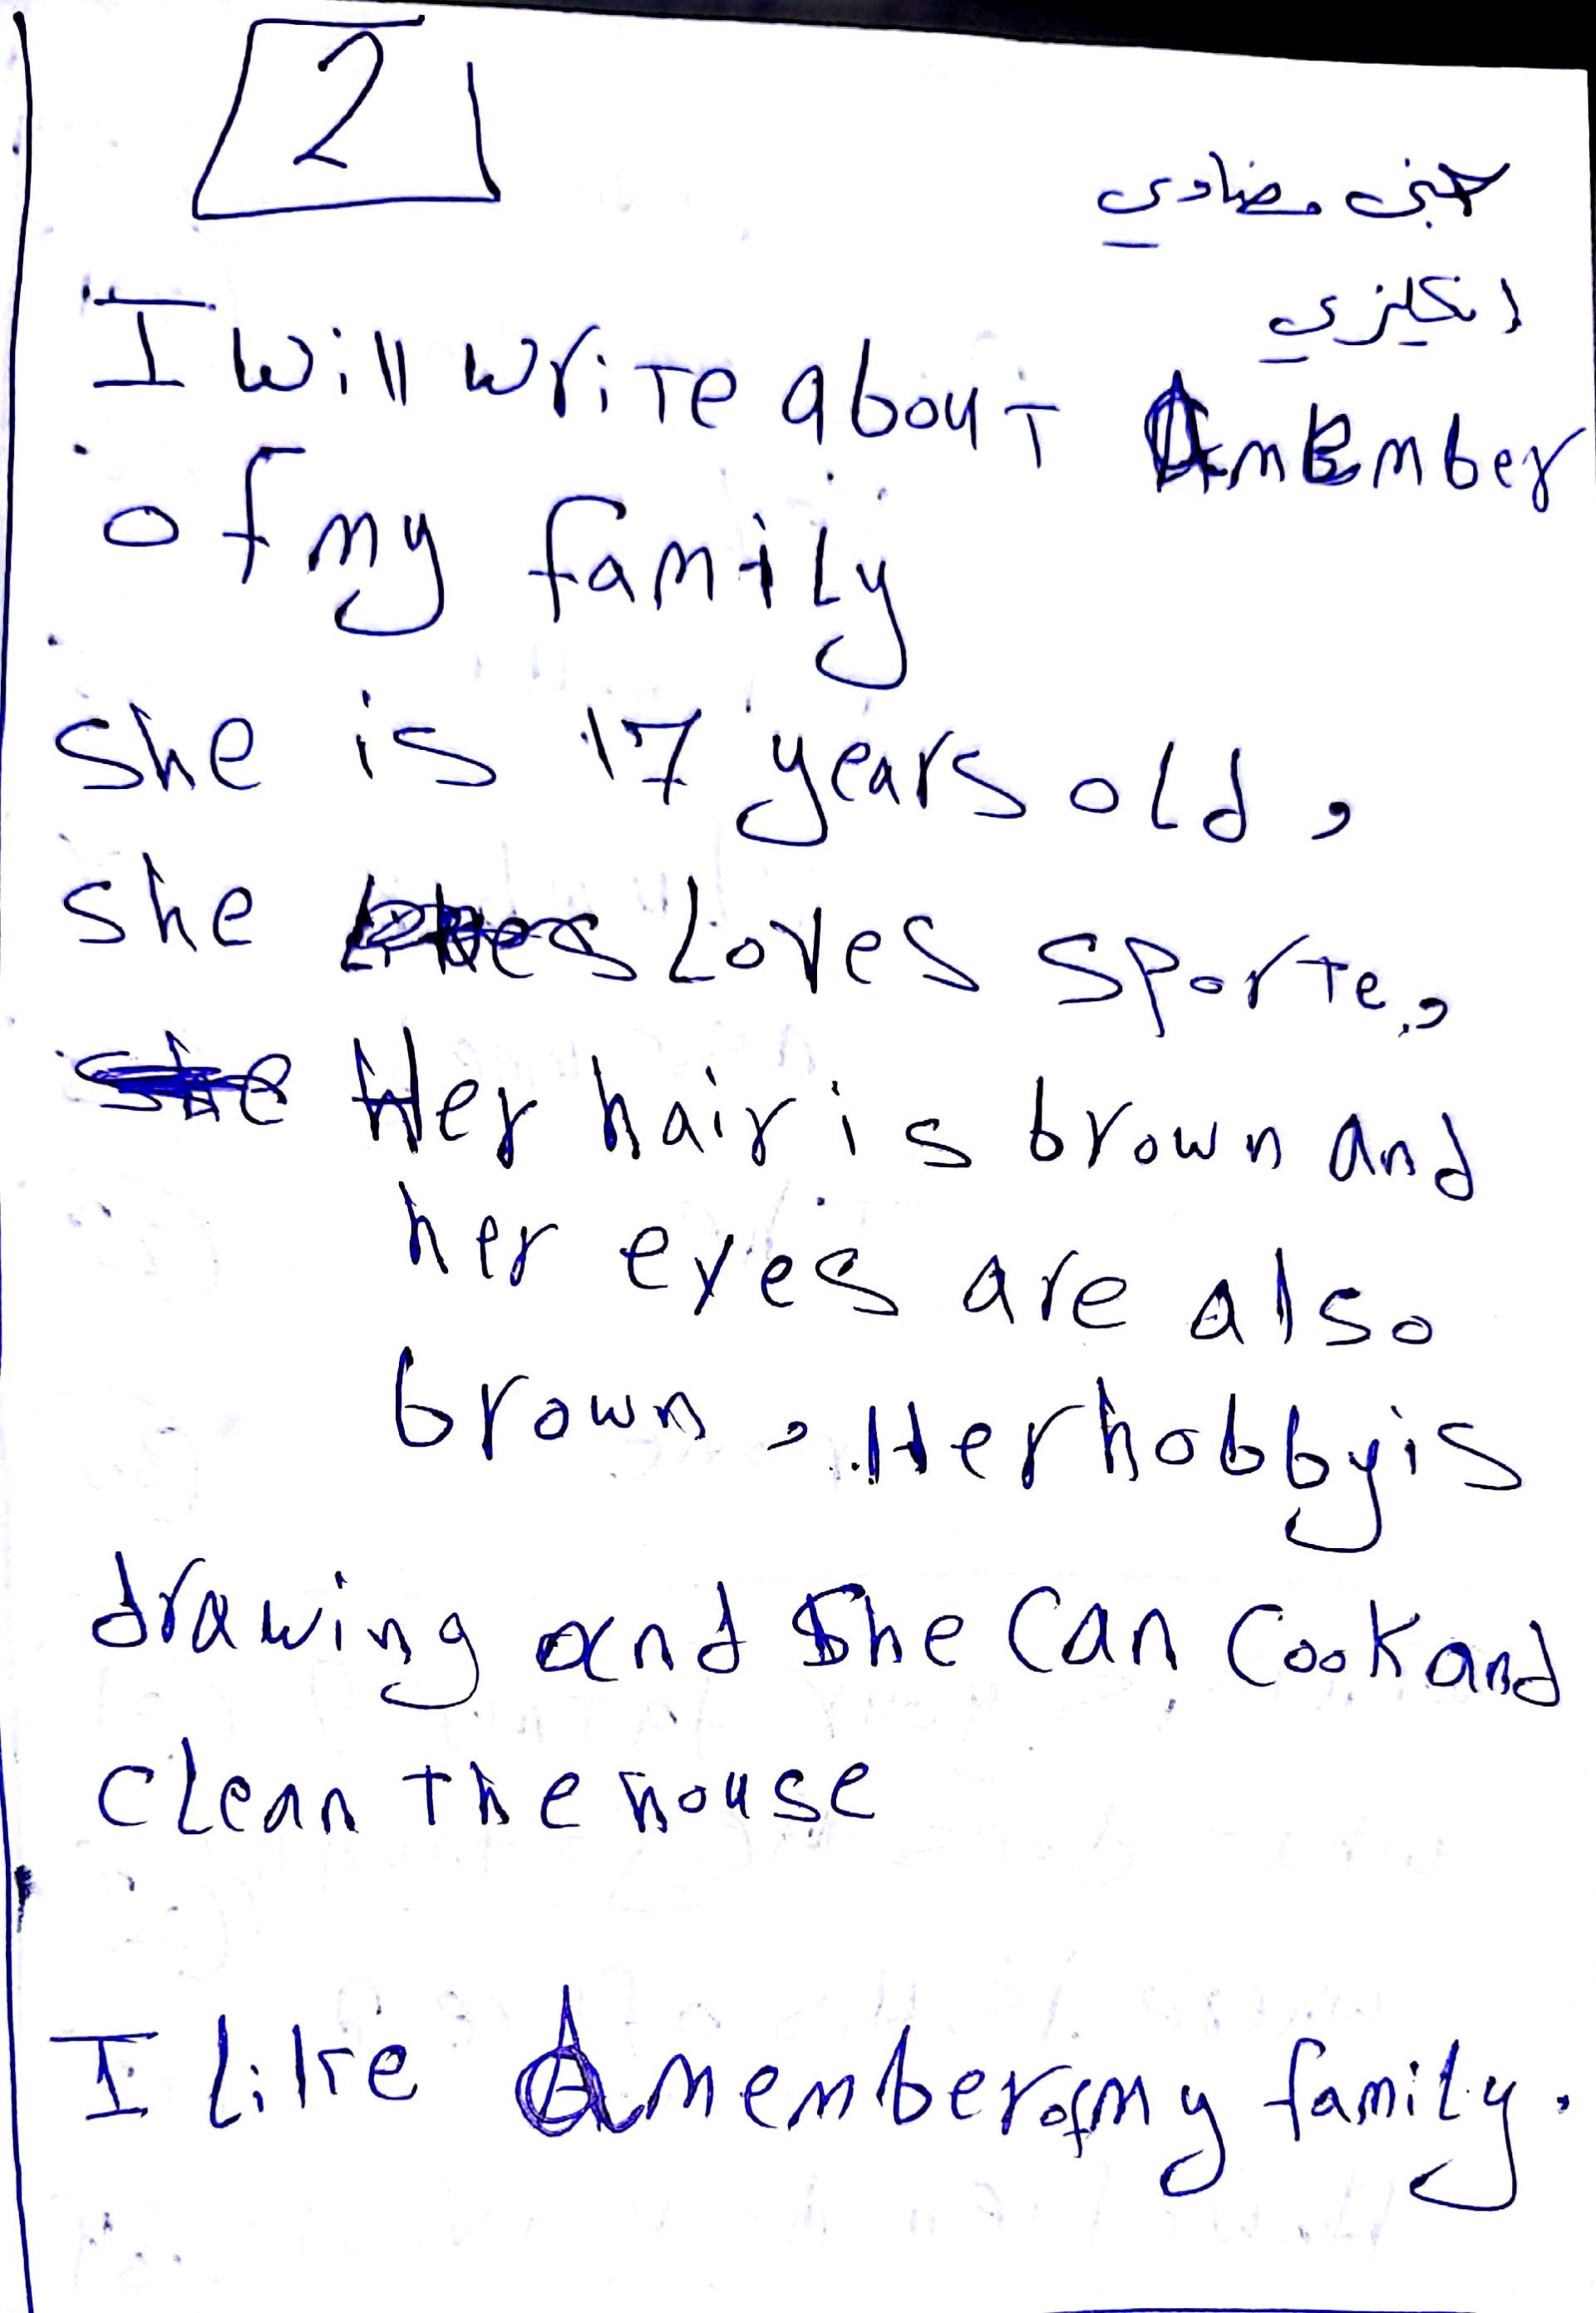 2
مضاوي
انكليزي
I will write about A member
of my family
she is 17 years old,
she Loves sporte,
Her hair is brown and
her eyes are also
brown, Her hobby is
drawing and she can cook and
clean the house
I like A member of my family.